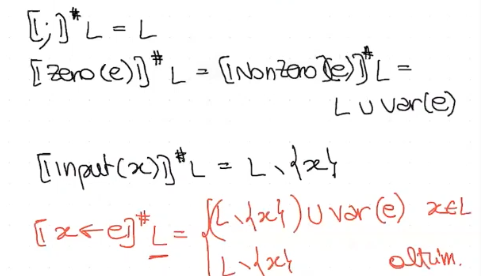 ⟦;⟧# L = L
⟦Zero(e)⟧# L = ⟦NonZero(e)⟧# L =
L ∪ Var(e)
⟦input(x)⟧# L = L \ {x}
⟦x ← e⟧# L = { (L \ {x}) ∪ Var(e) x ∈ L
L \ {x} altrim.